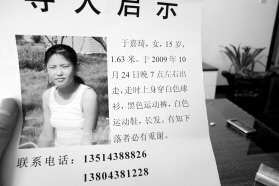 寻人启示
于嘉琦，女，15岁，
1.63米。于2009年10
月24日晚7点左右出
走，走时上身穿白色球
衫，黑色运动裤，白色
运动鞋，长发。有知下
落者必有重谢。
联系电话：13514388826
13804381228